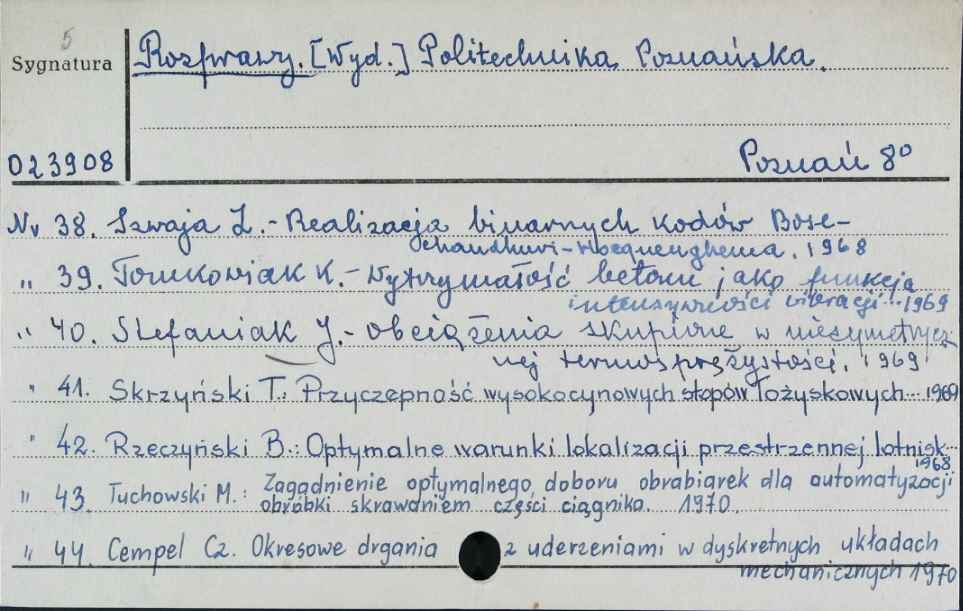 5
Sygnatura
Rozprawy. [Wyd.] Politechnika Poznańska.
023908
Poznań 8°
Nr 38. Szwaja Z. - Realizacja binarnych kodów Bose-
Chaudhuri-Hocquenghema. 1968
" 39. Tomkowiak K. - Wytrzymałość betonu jako funkcja
intensywności wibracji... 1969
" 40. Stefaniak J. - Obciążenia skupione w niesymetrycz-
nej termosprężystości. 1969
" 41. Skrzyński T.: Przyczepność wysokocynowych stopów łożyskowych... 1969
" 42. Rzeczyński B.: Optymalne warunki lokalizacji przestrzennej lotnisk...
1968
" 43. Tuchowski M.: Zagadnienie optymalnego doboru obrabiarek dla automatyzacji
obróbki skrawaniem części ciągnika. 1970.
" 44. Cempel Cz. Okresowe drgania z uderzeniami w dyskretnych układach
mechanicznych 1970